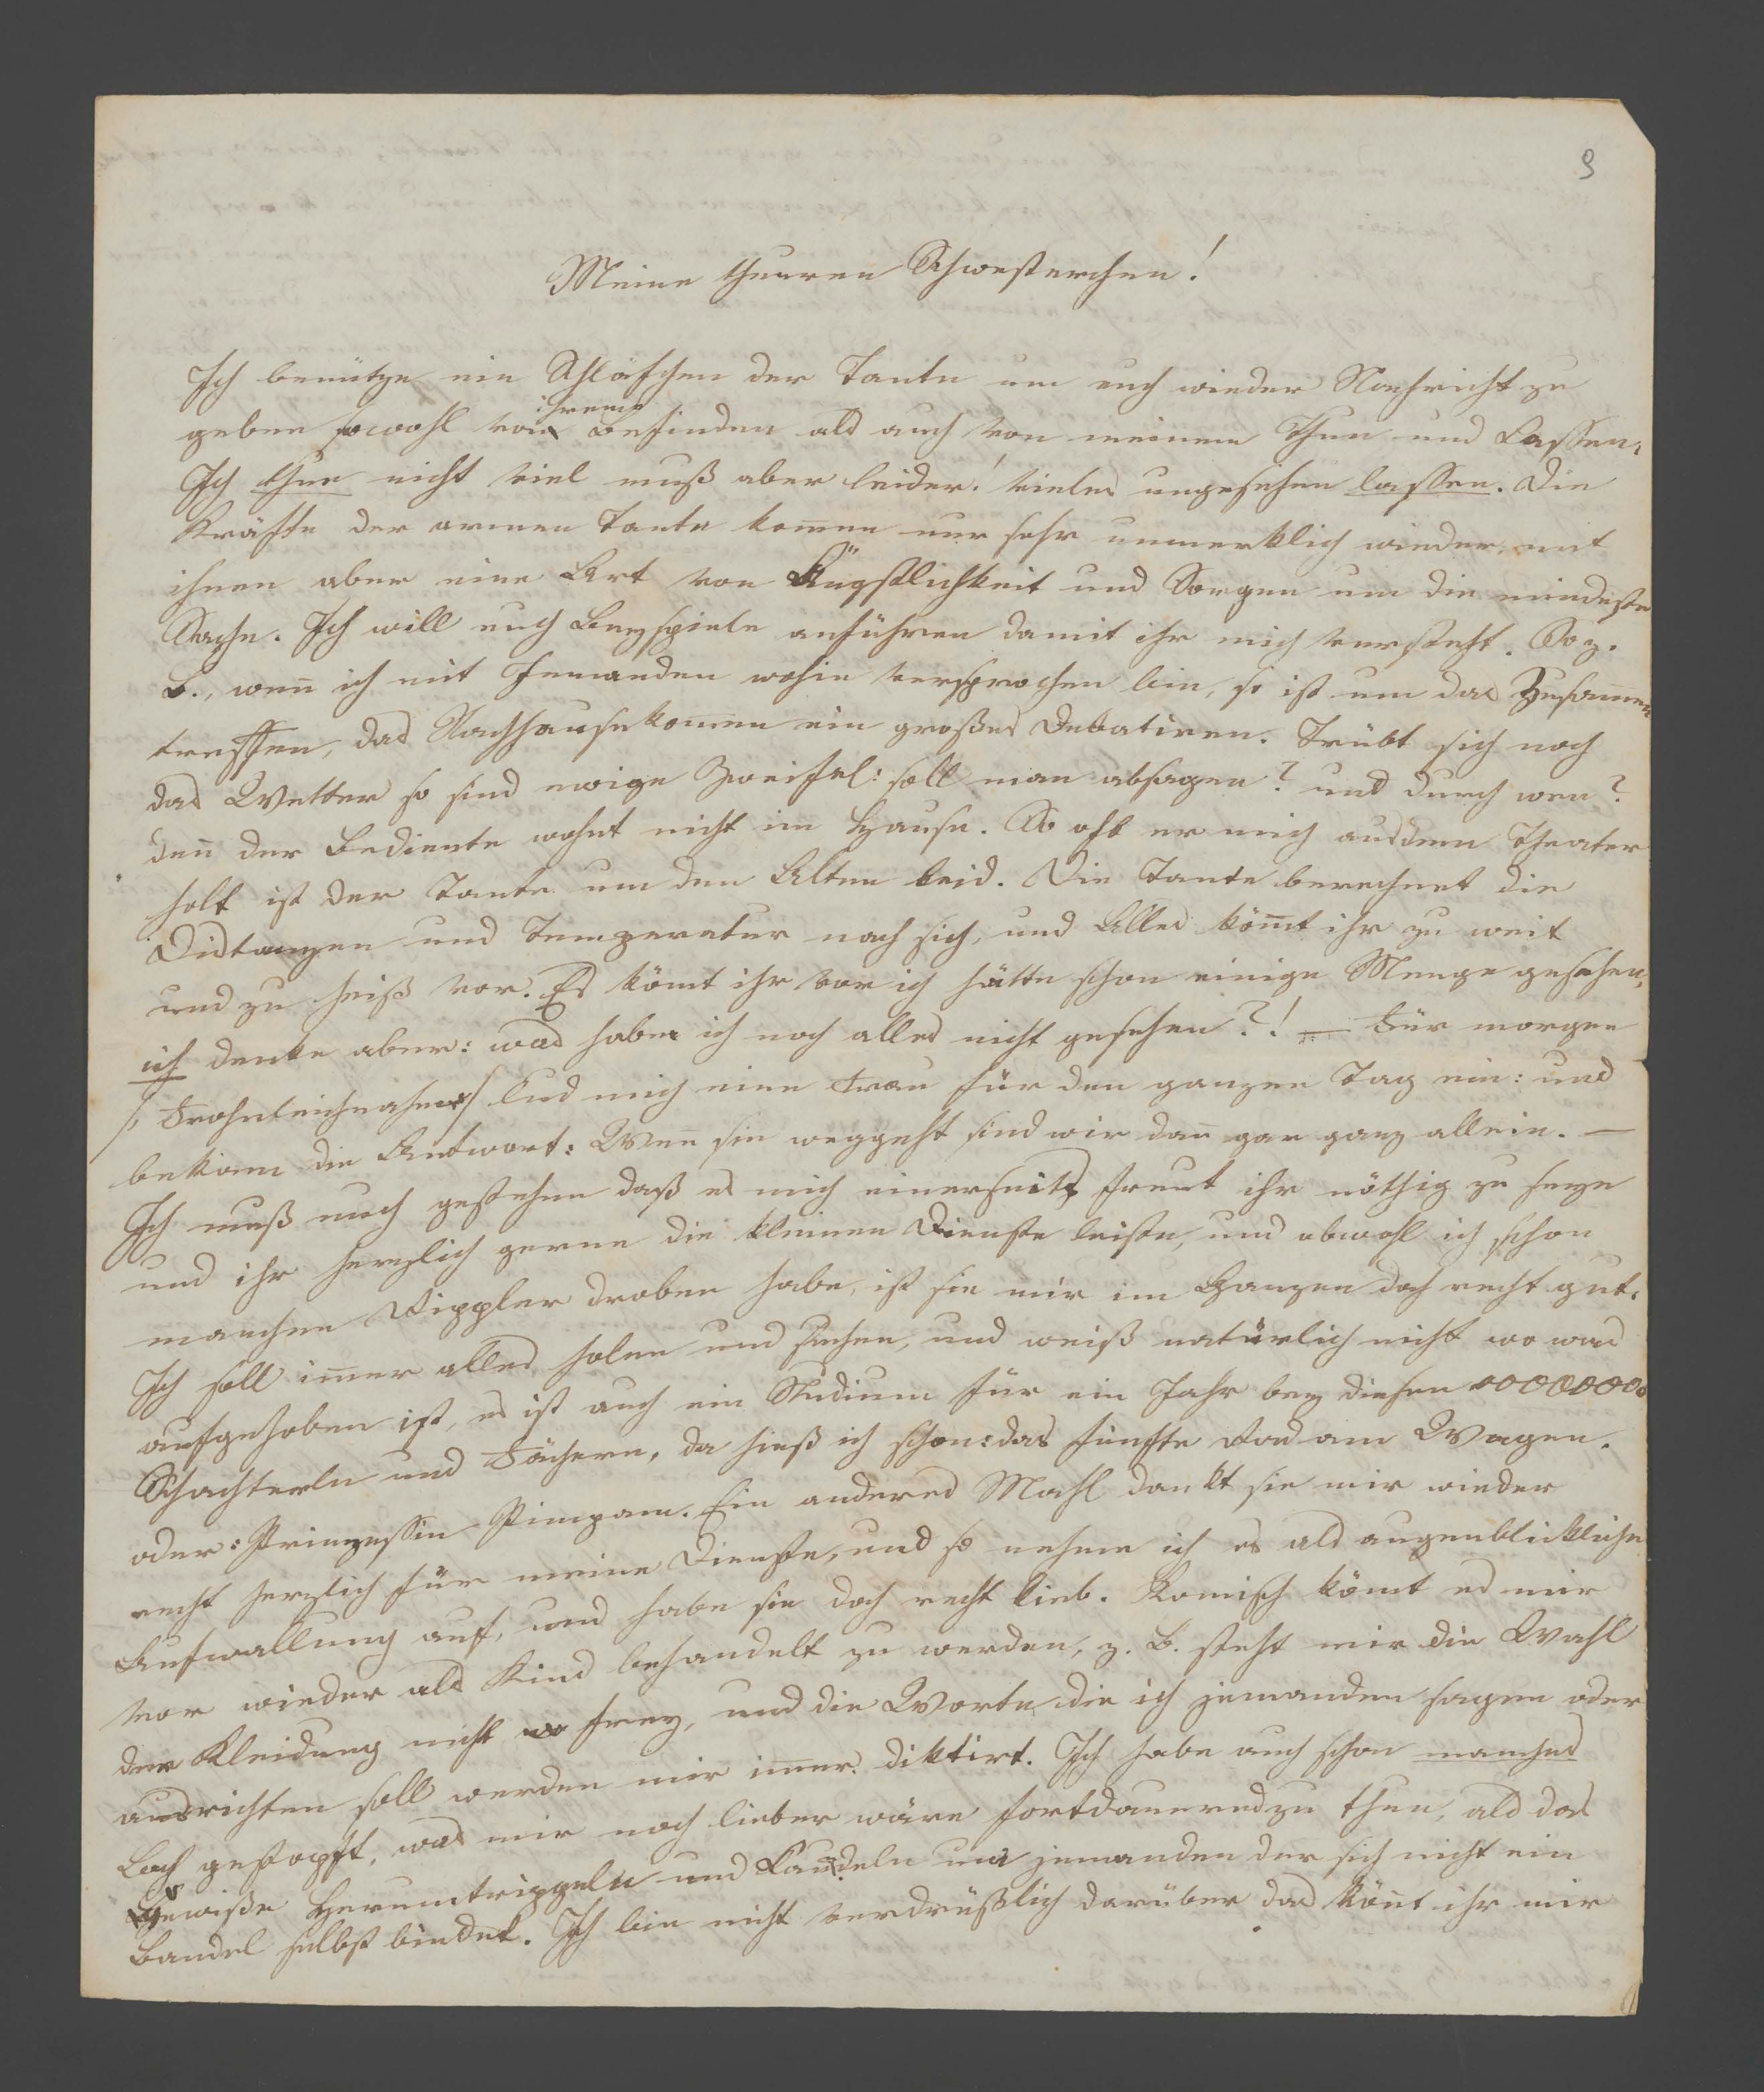 9
Meine theuren Schwesterchen!
Ich benütze ein Schläfchen der Tante um euch wieder Nachricht zu
ihrem
geben sowohl von Befinden als auch von meinem Thun und Lassen.
Ich thue nicht viel muß aber leider! vieles ungesehen lassen. Die
Kräfte der armen Tante kom̅en nur sehr unmerklich wieder, mit
ihnen aber eine Art von Ängstlichkeit und Sorgen um die mindeste
Sache. Ich will euch Beyspiele anführen damit ihr mich versteht. So z.
B., wen̅ ich mit Jemanden wohin versprochen bin, so ist um das Zusam̅en
treffen, das Nachhausekom̅en ein großes Debatiren. Trübt sich noch
das Wetter so sind ewige Zweifel: soll man absagen? und durch wen?
den̅ der Bediente wohnt nicht im Hause. So oft er mich aus dem Theater
holt ist der Tante um den Alten leid. Die Tante berechnet die
Distanzen und Temperatur nach sich, und Alles köm̅t ihr zu weit
und zu heiß vor. Es kömt ihr vor ich hätte schon einige Menge gesehen,
ich denke aber: was habe ich noch alles nicht gesehen?! — Für morgen
/: Frohnleichnahm :/ lud mich eine Frau für den ganzen Tag ein: und
bekam die Antwort: Wen̅ sie weggeht sind wir dan̅ gar ganz allein. —
Ich muß euch gestehen daß es mich einerseits freut ihr nöthig zu seyn
und ihr herzlich gerne die kleinen Dienste leiste, und obwohl ich schon
manchen Dippler droben habe, ist sie mir im Ganzen doch recht gut.
Ich soll im̅er alles holen und suchen, und weiß natürlich nicht wo was
aufgehoben ist, es ist auch ein Studium für ein Jahr bey diesen 00000000
Schachterln und Fächern, da hieß ich schon: das fünfte Rad am Wagen.
oder: Prinzessin Pimpam. Ein anderes Mahl dankt sie mir wieder
recht herzlich für meine Dienste, und so nehme ich es als augenblickliche
Aufwallung auf, und habe sie doch recht lieb. Komisch kömt es mir
vor wieder als Kind behandelt zu werden, z. B. steht mir die Wahl
der Kleidung nicht frey, und die Worte die ich jemanden sagen oder
ausrichten soll werden mir im̅er diktirt. Ich habe auch schon manches
Loch gestopft, was mir noch lieber wäre fortdauernd zu thun, als das
Gewiße Herumtrippeln und um jemanden der sich nicht ein
Bandel selbst bindet. Ich bin nicht verdrüßlich darüber das kön̅t ihr mir